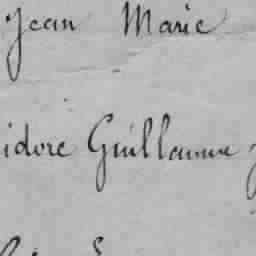 Jean Marie
idore Guillaume